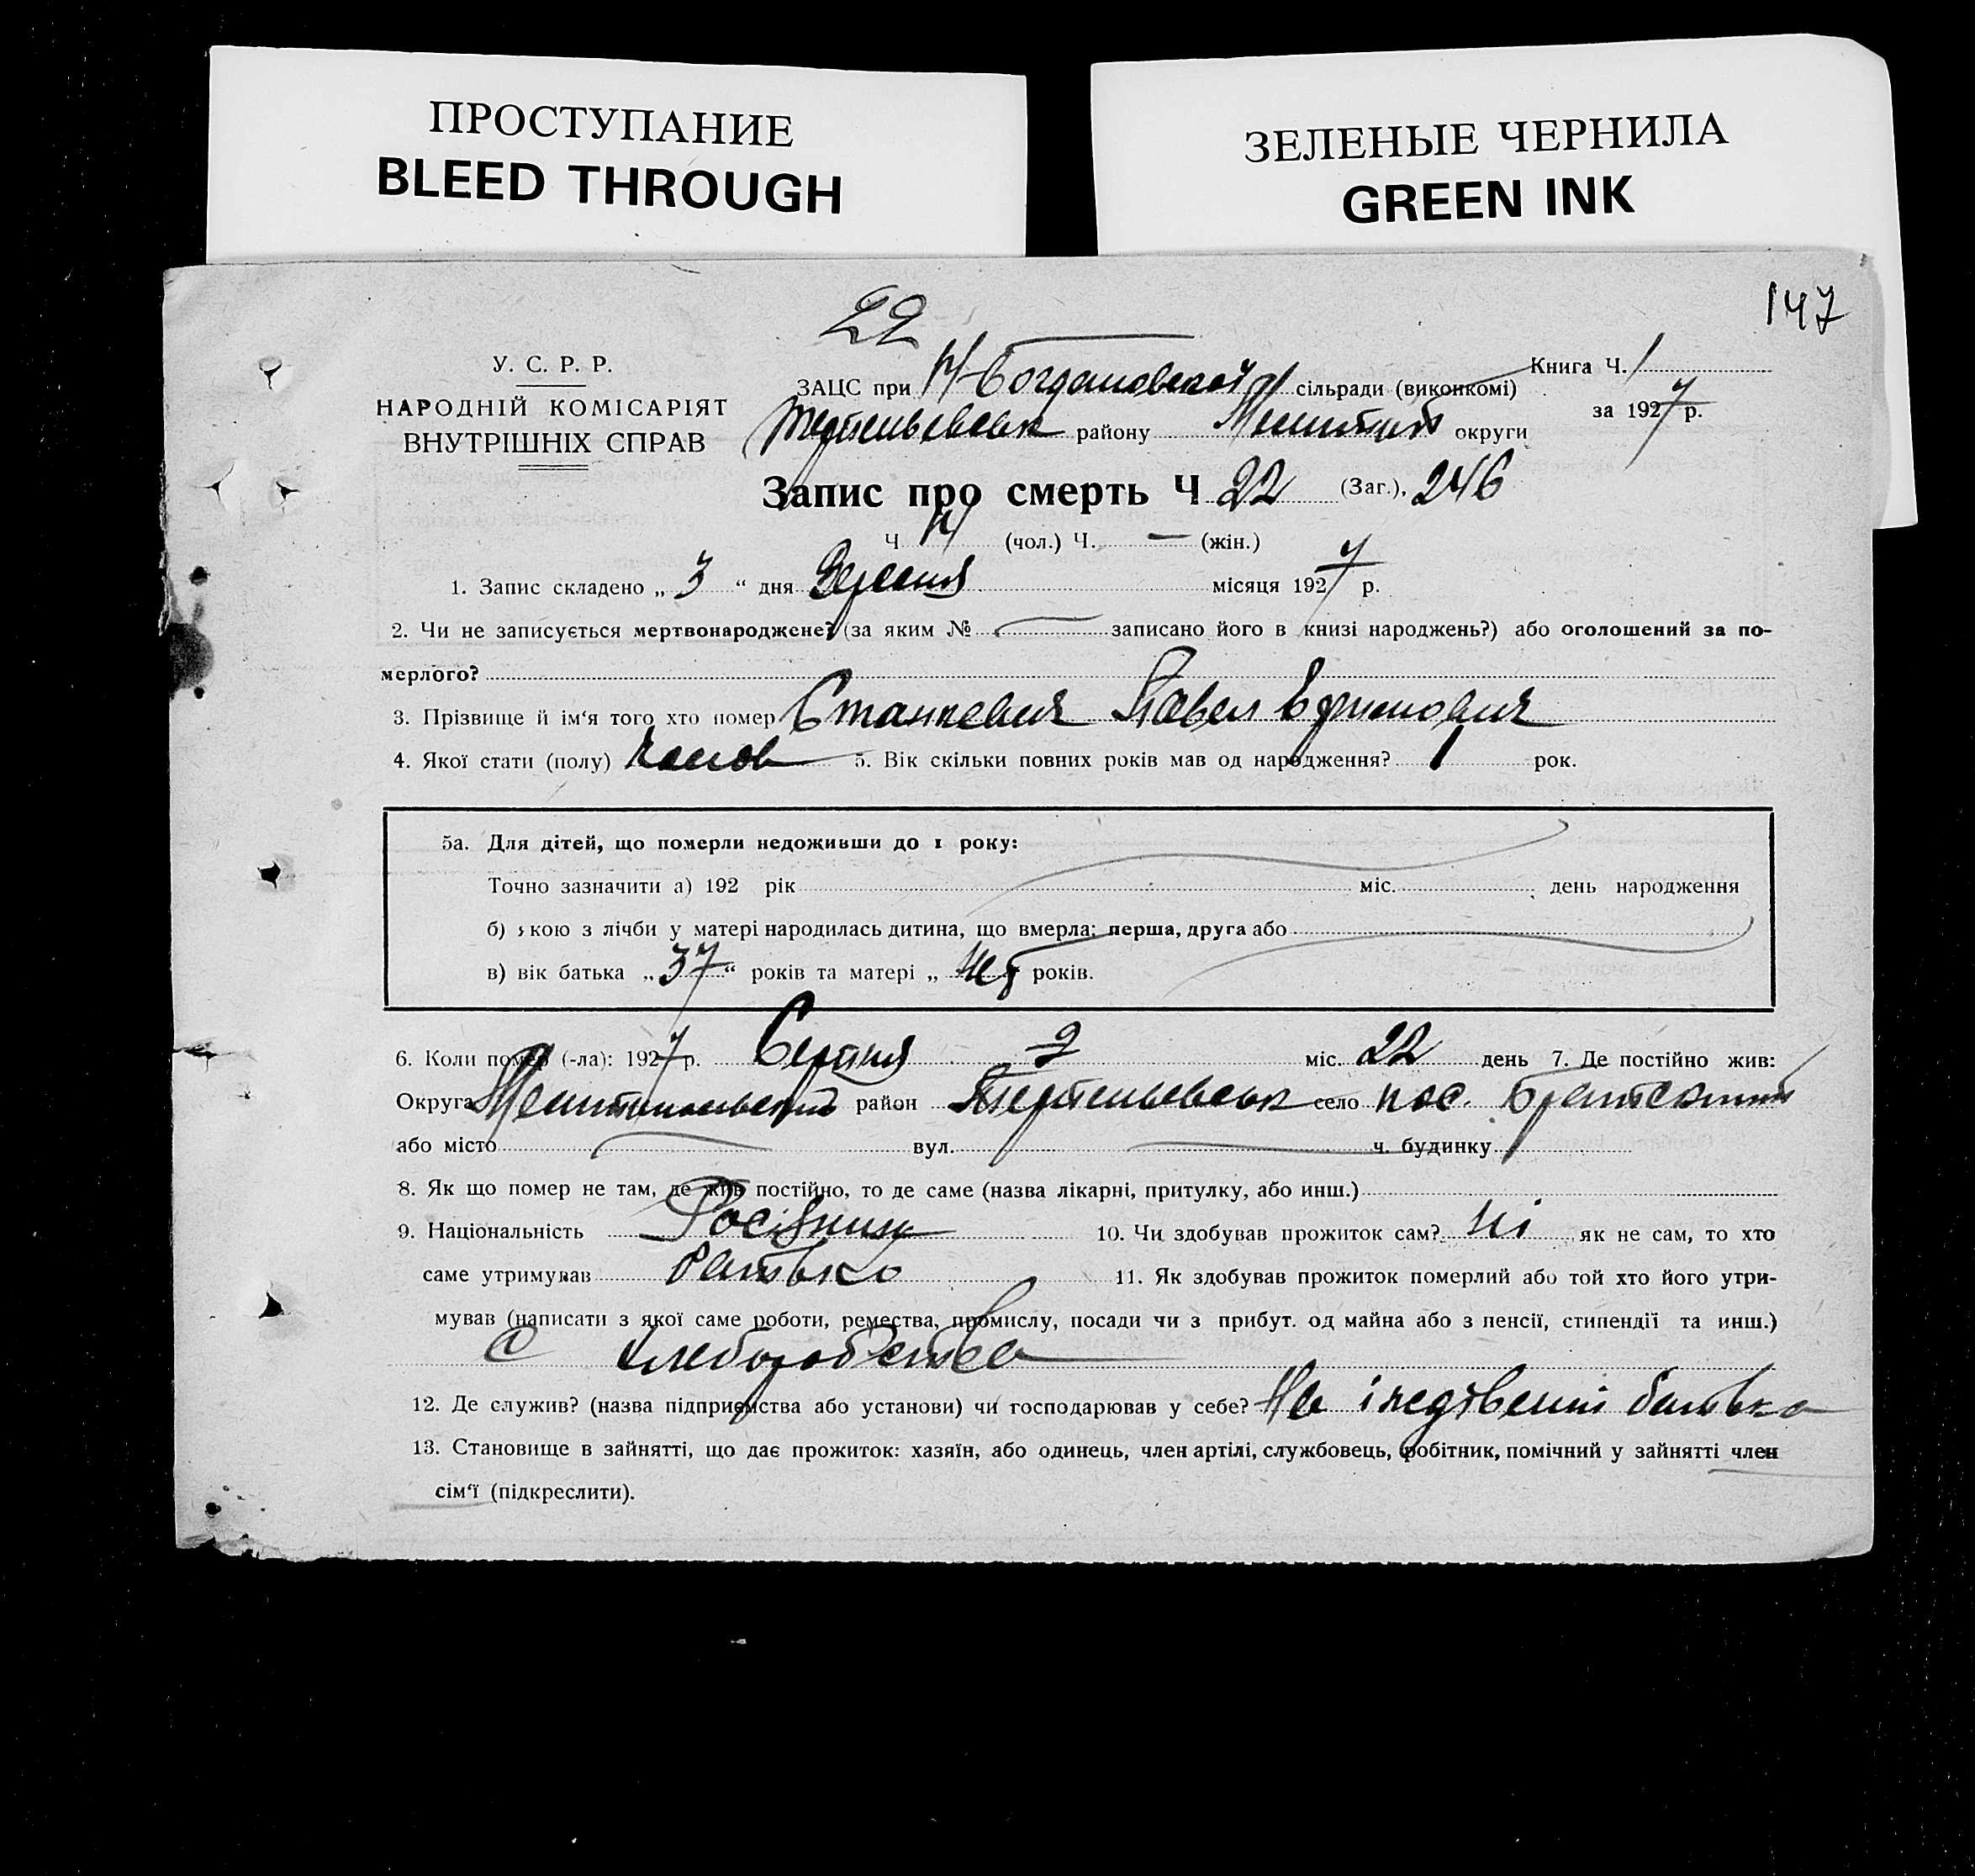 ПРОСТУПАНИЕ
BLEED THROUGH
ЗЕЛЕНЫЕ ЧЕРНИЛА
GREEN INK
147
22
У. С. Р. Р.
НАРОДНІЙ КОМІСАРІЯТ
ВНУТРІШНІХ СПРАВ
ЗАЦС при Н-Богдановской сільради (виконкомі)
Книга Ч. 1
за 1927 р.
району Меліт округи
Запис про смерть Ч 22 (Заг.), 246
Ч (чол.) Ч. — (жін.)
1. Запис складено „ 3 “ дня Вересня місяця 1927 р.
2. Чи не записується мертвонароджене? (за яким № записано його в книзі народжень?) або оголошений за по-
мерлого?
3. Прізвище й ім‘я того хто помер Станкевич Павел Ефимович
4. Якої стати (полу) 5. Вік скільки повних років мав од народження? 1 рок.
5а. Для дітей, що померли недоживши до 1 року:
Точно зазначити а) 192 рік міс. день народження
б) якою з лічби у матері народилась дитина, що вмерла: перша, друга або
в) вік батька „ 37 “ років та матері „ років.
6. Коли помер (-ла): 1927 р. Серпня міс. 22 день 7. Де постійно жив:
Округа Мелитопольский район село пос.
або місто вул. ч. будинку
8. Як що помер не там, де жив постійно, то де саме (назва лікарні, притулку, або инш.)
9. Національність 10. Чи здобував прожиток сам? Ні як не сам, то хто
саме утримував батько 11. Як здобував прожиток померлий або той хто його утри-
мував (написати з якої саме роботи, ремества, промислу, посади чи з прибут. од майна або з пенсії, стипендії та инш.)
С хлеборобства
12. Де служив? (назва підприємства або установи) чи господарював у себе? На батька
13. Становище в зайнятті, що дає прожиток: хазяїн, або одинець, член артілі, службовець, робітник, помічний у зайнятті член
сім‘ї (підкреслити).